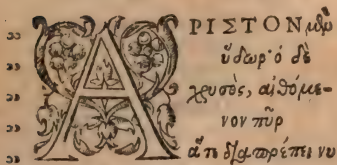 ” ΑΡΙΣΤΟΝ μὲν
” ὕδωρ· ὁ δὲ
” χρυσὸς, αἰθόμε-
” νον πῦρ
” ἅ τε διαπρέπει νυ